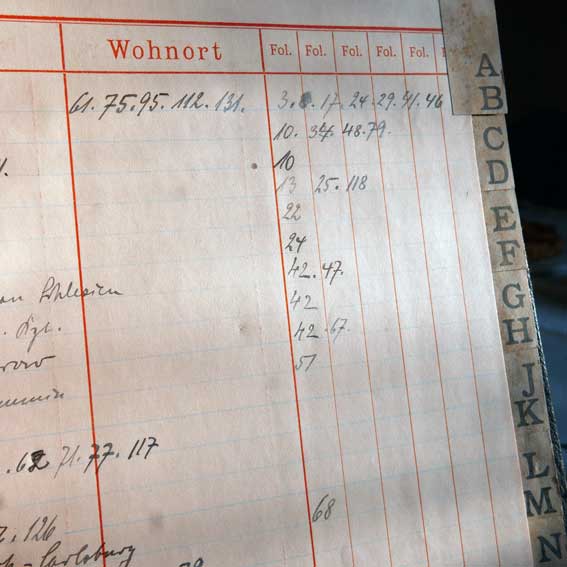 Wohnort Fol. Fol. Fol. Fol. Fol.
61. 75. 95. 112. 131. 3. 8. 17. 24. 29. 41. 46
10. 34. 48. 79.
10
13 25. 118
22
24
42. 47.
42
42. 67.
51
71. 77. 117
68
126
Carlsburg
A
B
C
D
E
F
G
H
J
K
L
M
N